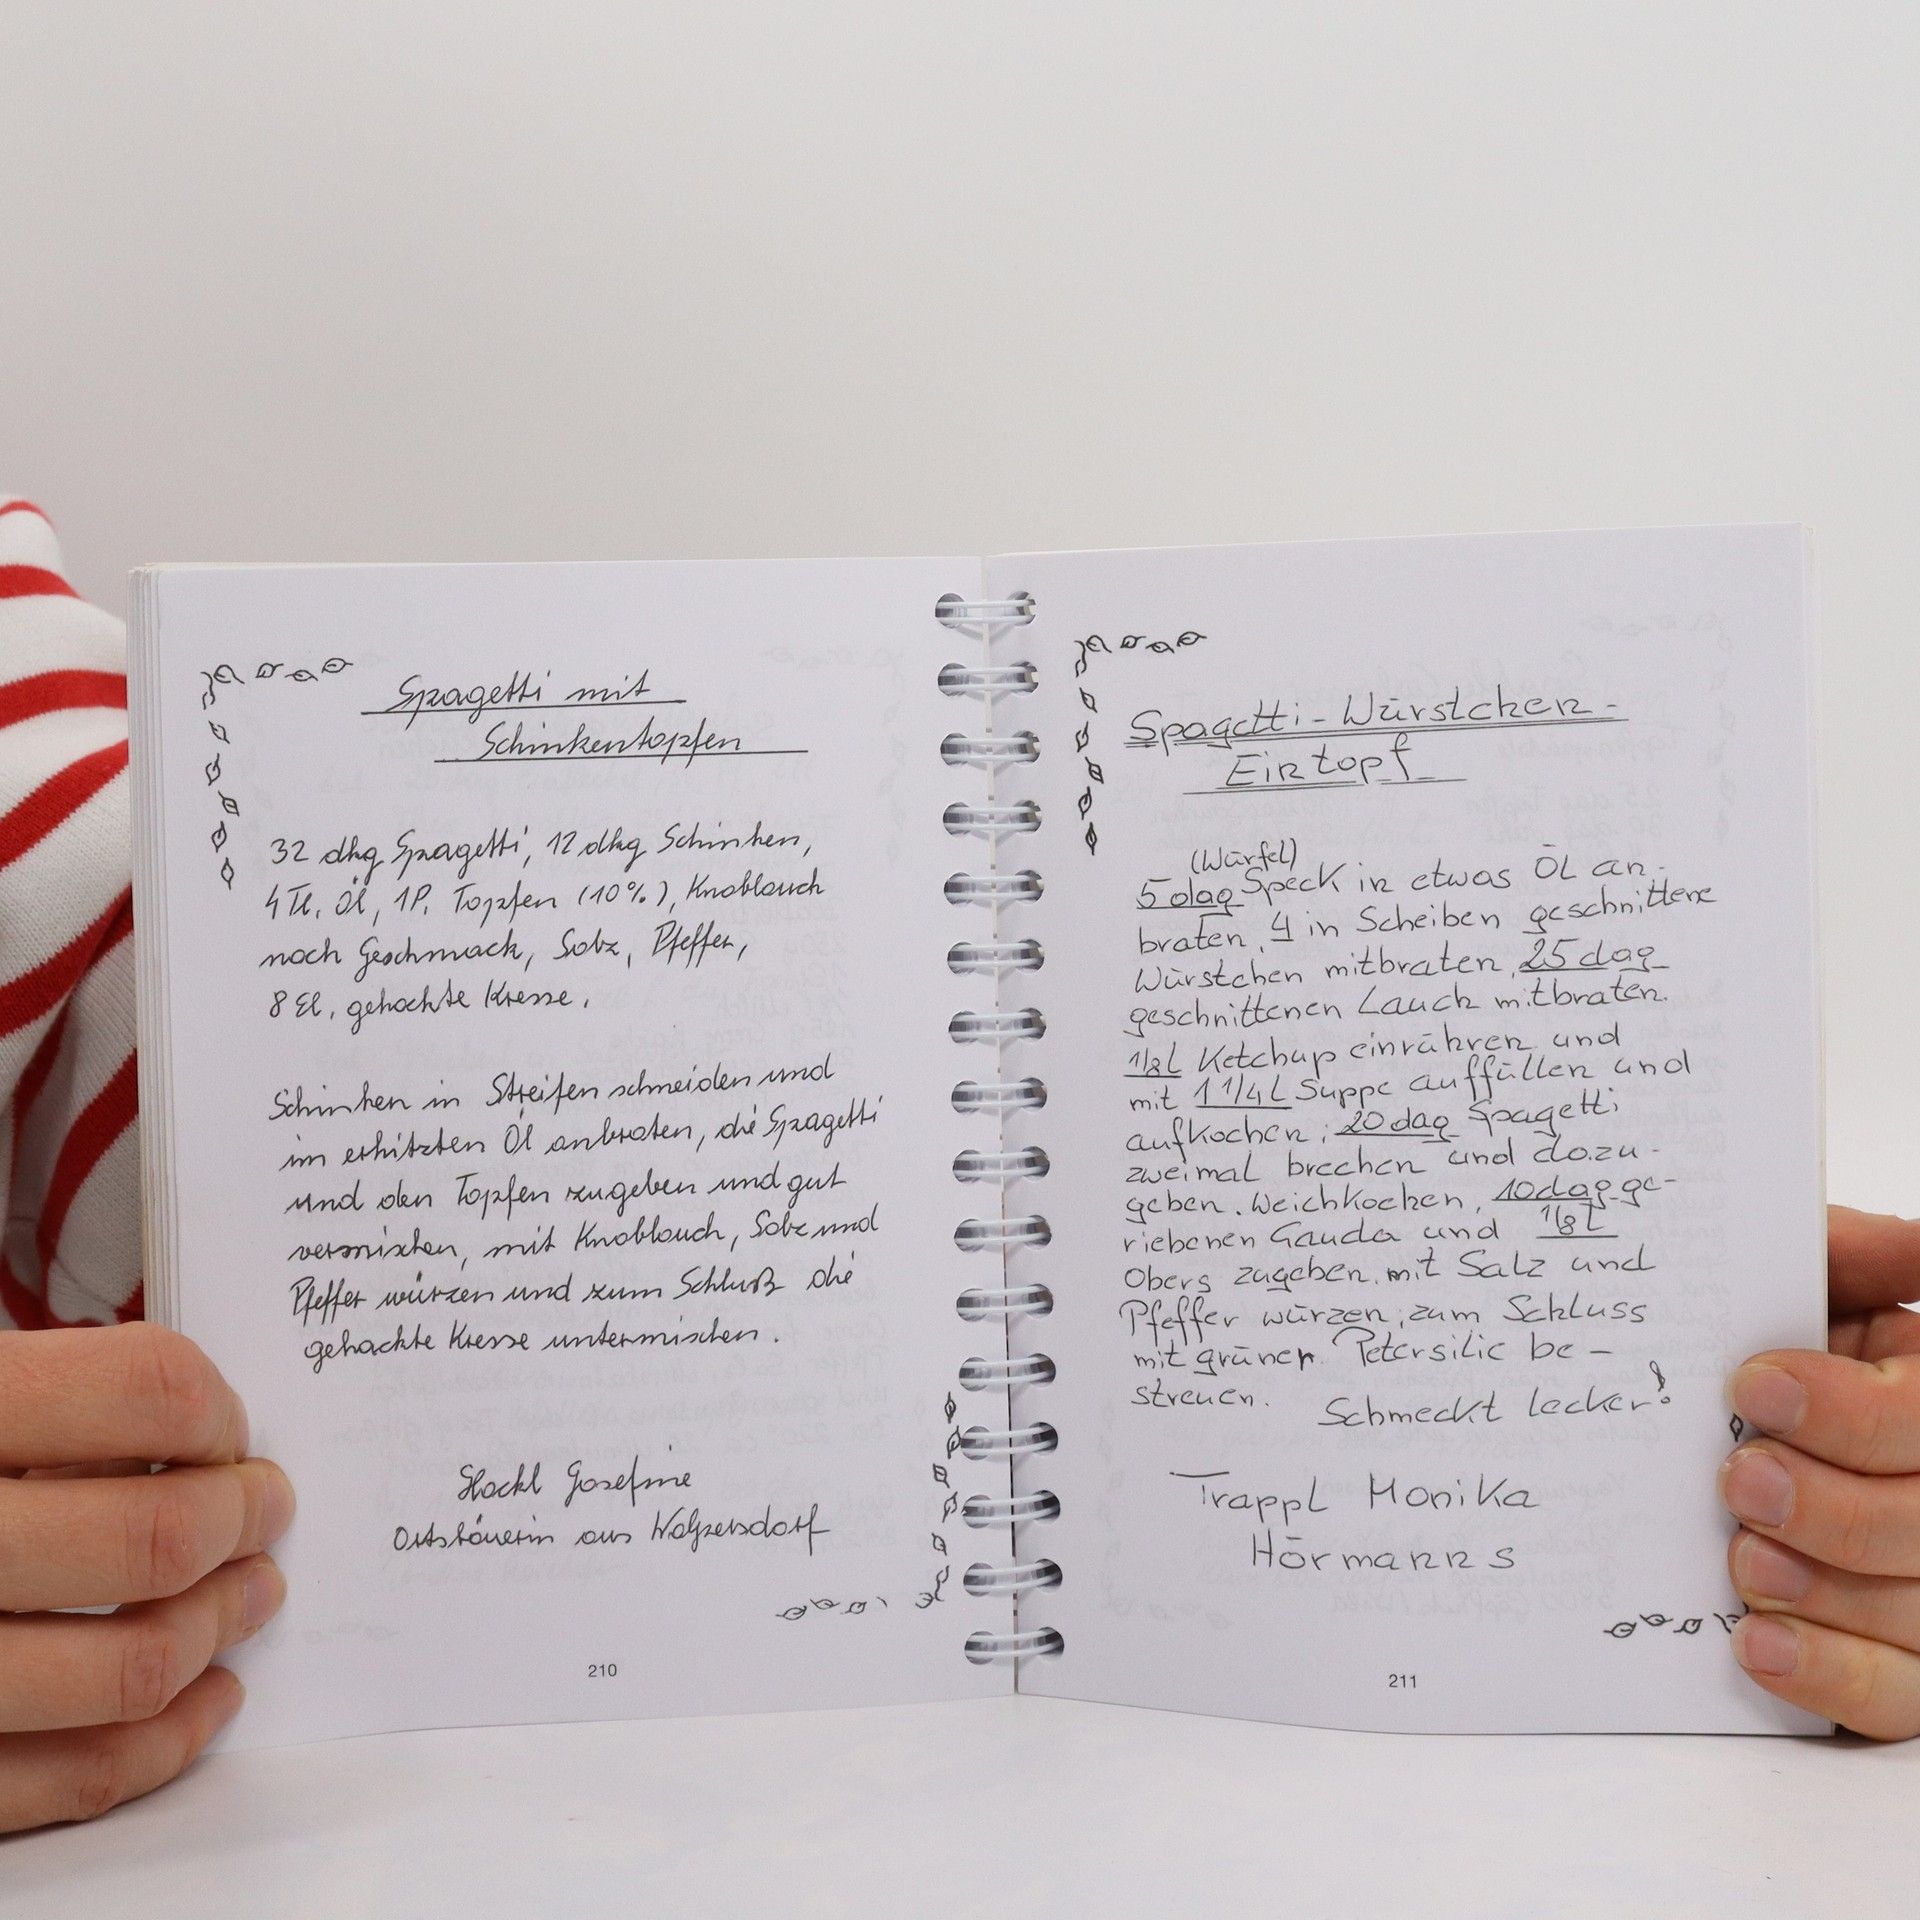 Spagetti mit
Schinkentopfen
32 dkg Spagetti, 12 dkg Schinken,
4 Tl. Öl, 1P. Topfen (10%), Knoblauch
nach Geschmack, Salz, Pfeffer,
8 El. gehackte Kresse.
Schinken in Streifen schneiden und
im erhitzten Öl anbraten, die Spagetti
und den Topfen zugeben und gut
vermischen, mit Knoblauch, Salz und
Pfeffer würzen und zum Schluß die
gehackte Kresse untermischen.
Hackl Josefine
Ortsbäuerin aus Wolfersdorf
210
Spagetti-Würstchen-
Eintopf
(Würfel)
5 dag Speck in etwas Öl an-
braten, 4 in Scheiben geschnittene
Würstchen mitbraten, 25 dag
geschnittenen Lauch mitbraten.
1/8 L Ketchup einrühren und
mit 1 1/4 L Suppe auffüllen und
aufkochen; 20 dag Spagetti
zweimal brechen und dazu-
geben. Weichkochen, 10 dag ge-
riebenen Gauda und 1/8 L
Obers zugeben, mit Salz und
Pfeffer würzen; zum Schluss
mit grüner Petersilie be-
streuen. Schmeckt lecker!
Trappl Monika
Hörmanns
211